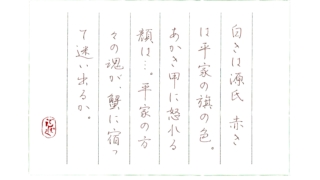 白きは源氏　赤き
は平家の旗の色。
あかき甲に怒れる
顔は…。平家の方
々の魂が、蟹に宿っ
て迷い出るか。